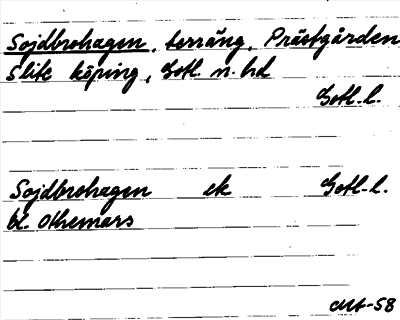 Sojdbrohagen, terräng, Prästgården
Slite köping, Gotl. n. hd
Gotl. l.
Sojdbrohagen ek Gotl. l.
bl. Othemars